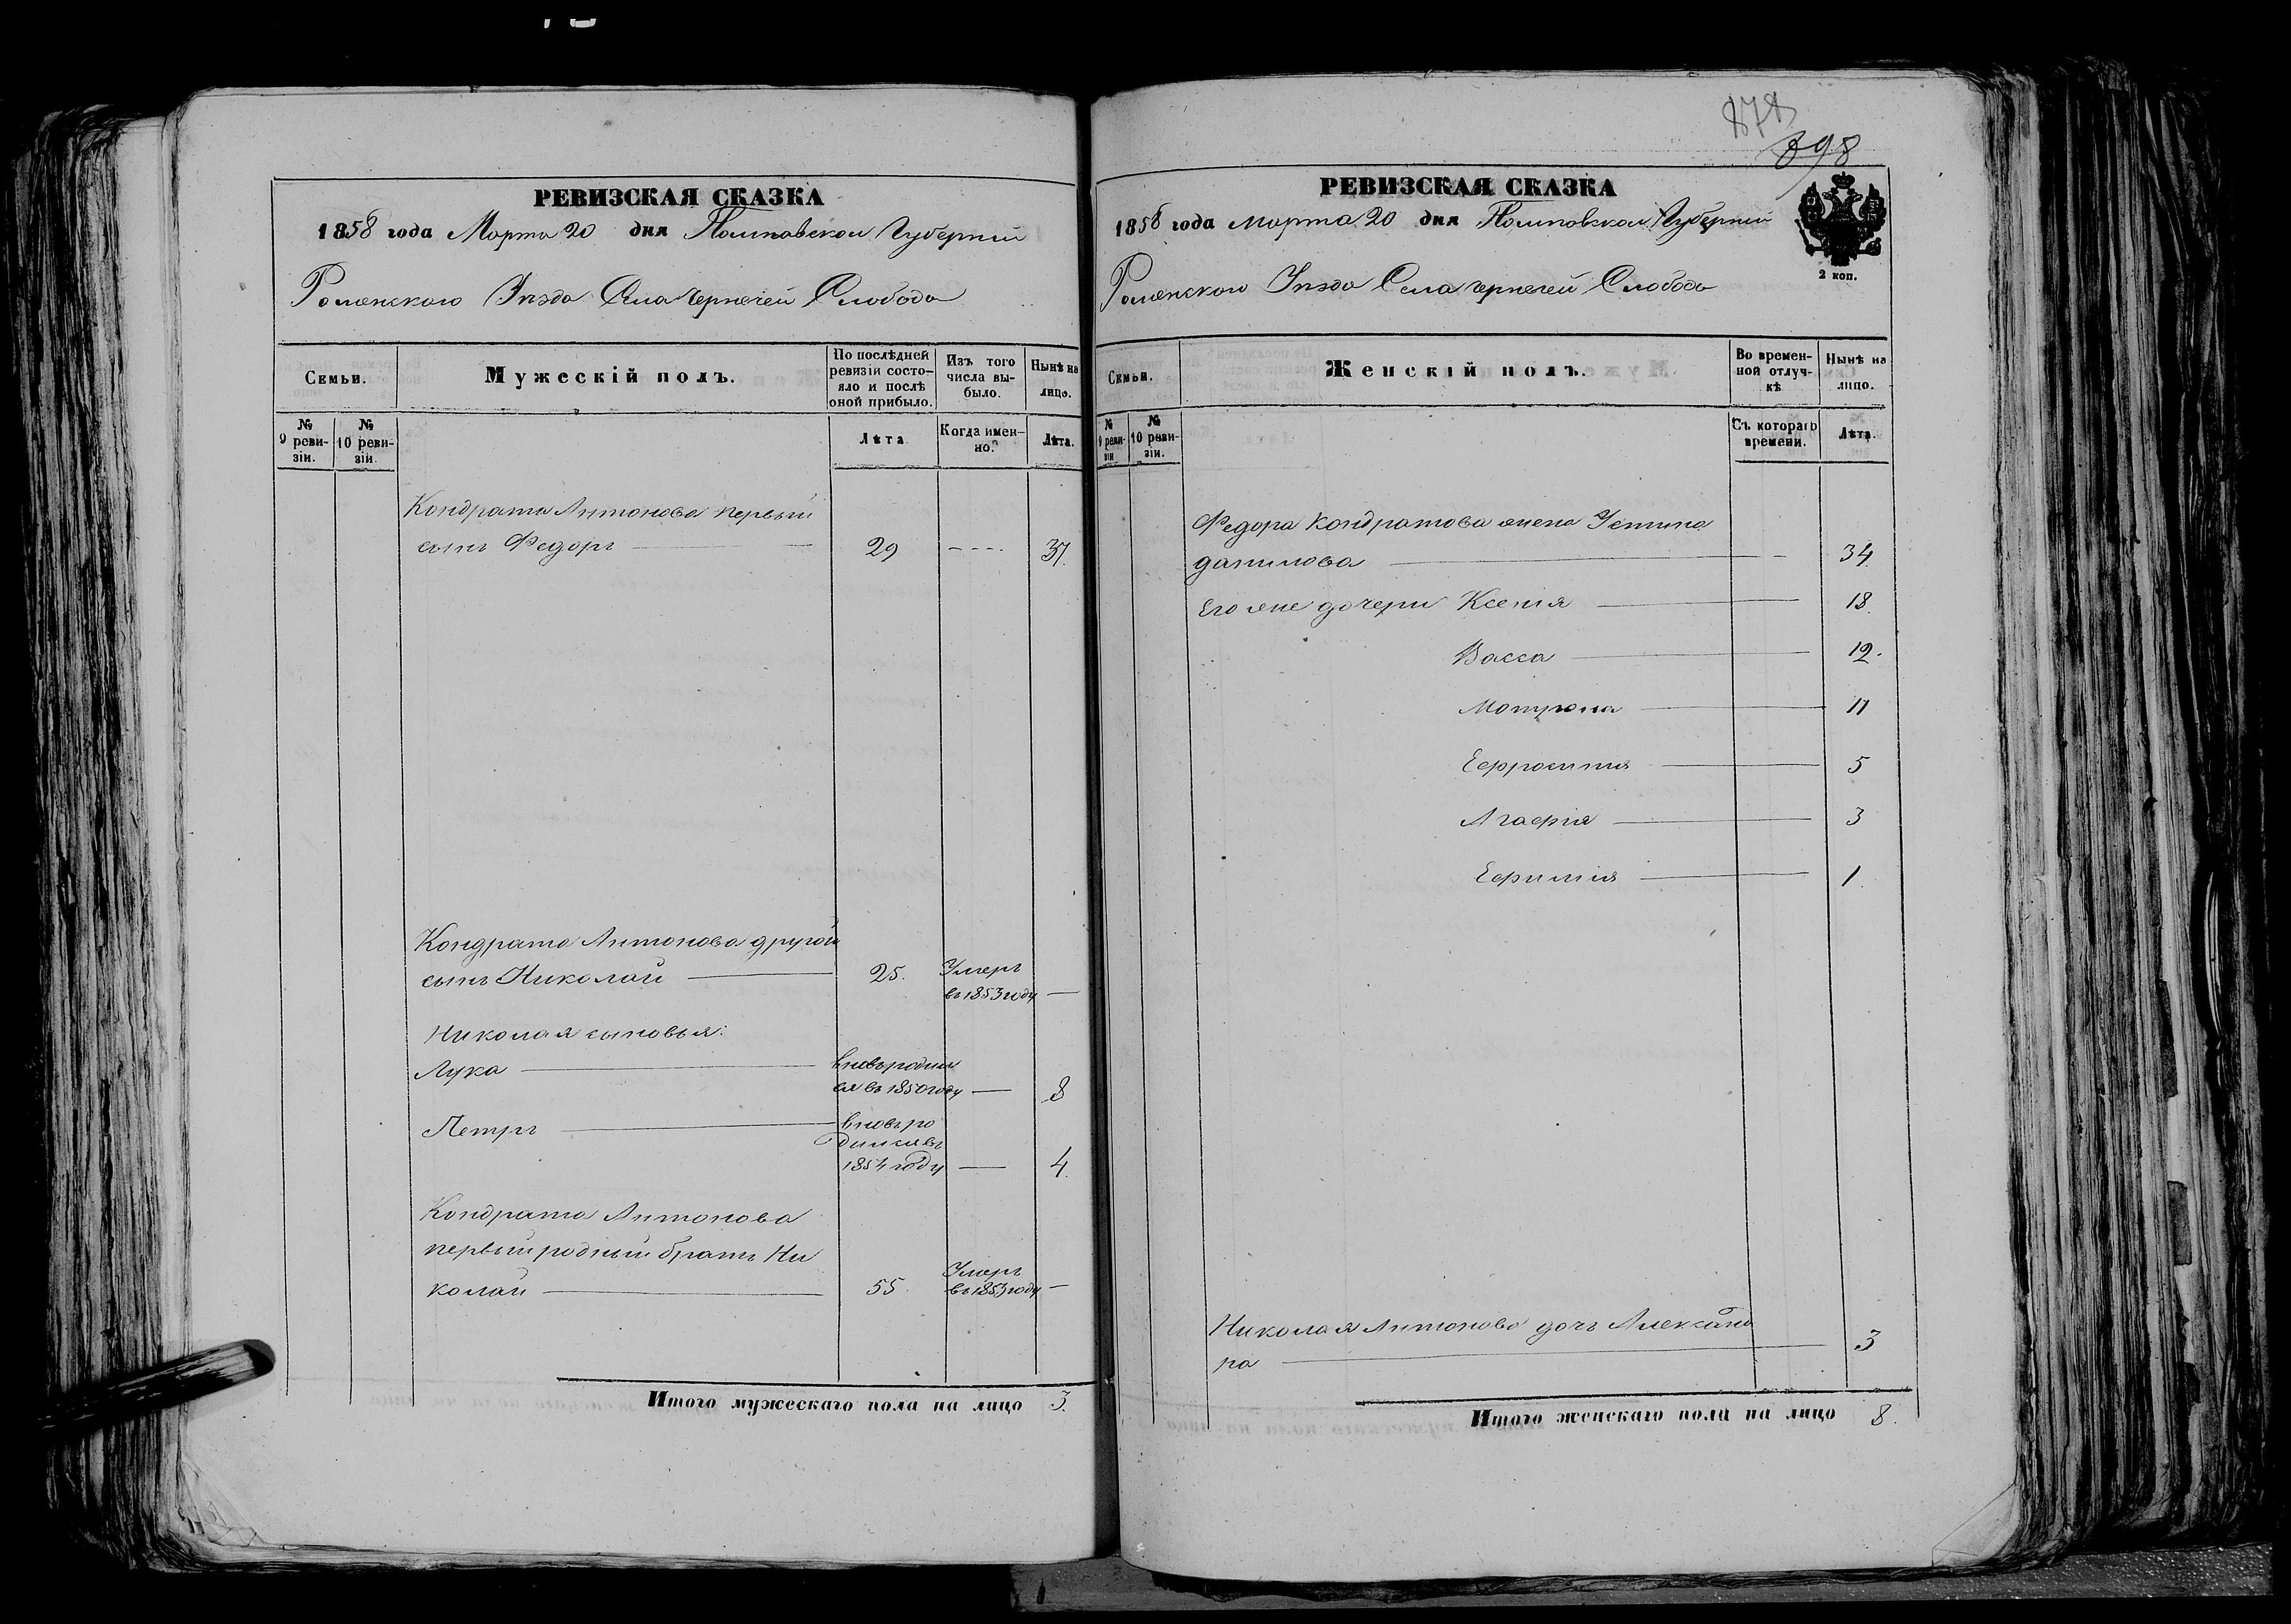 РЕВИЗСКАЯ СКАЗКА
1858 года Марта 20 дня Полтавской Губернiи
Роменского Уѣзда Села Чернечей Слободы
Семьи.
Мужескiй полъ.
По послѣдней ревизiи состо-
яло и послѣ
оной прибыло.
Изъ того
числа вы-
было.
Нынѣ на
лицо.
№
9 реви-
зiи.
№
10 реви-
зiи.
Лѣта
Когда имен-
но?
Лѣта.
Кондрата Антонова первый
сынъ Федоръ 29 37.
Кондрата Антонова другой
сынъ Николай 25. Умеръ
въ 1853 году
Николая сыновья:
Лука вновь родил
ся въ 1850 году 8
Петръ вновь ро
дился въ
1854 году 4.
Кондрата Антонова
первый родный братъ Ни
колай 55 Умеръ
въ 1853 году
Итого мужескаго пола на лицо 3.
878
398
РЕВИЗСКАЯ СКАЗКА
1858 года Марта 20 дня Полтавской Губернiи
Роменского Уѣзда Села Чернечей Слободы
2 коп.
Семьи.
Женскiй полъ.
Во времен-
ной отлуч-
кѣ
Нынѣ на
лицо.
№
9 реви-
зiи
№
10 реви-
зiи.
Съ котораго
времени.
Лѣта.
Федора Кондратова жена Устина
Данилова 34
Его же дочери Ксенiя 18.
Васса 12.
Мотрона 11
Ефросинiя 5
Агафiя 3
Ефимiя 1.
Николая Антонова дочь Александ
ра 3
Итого женскаго пола на лицо 8.